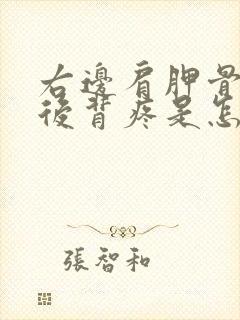 右邊肩胛骨
後背疼是怎
張智和